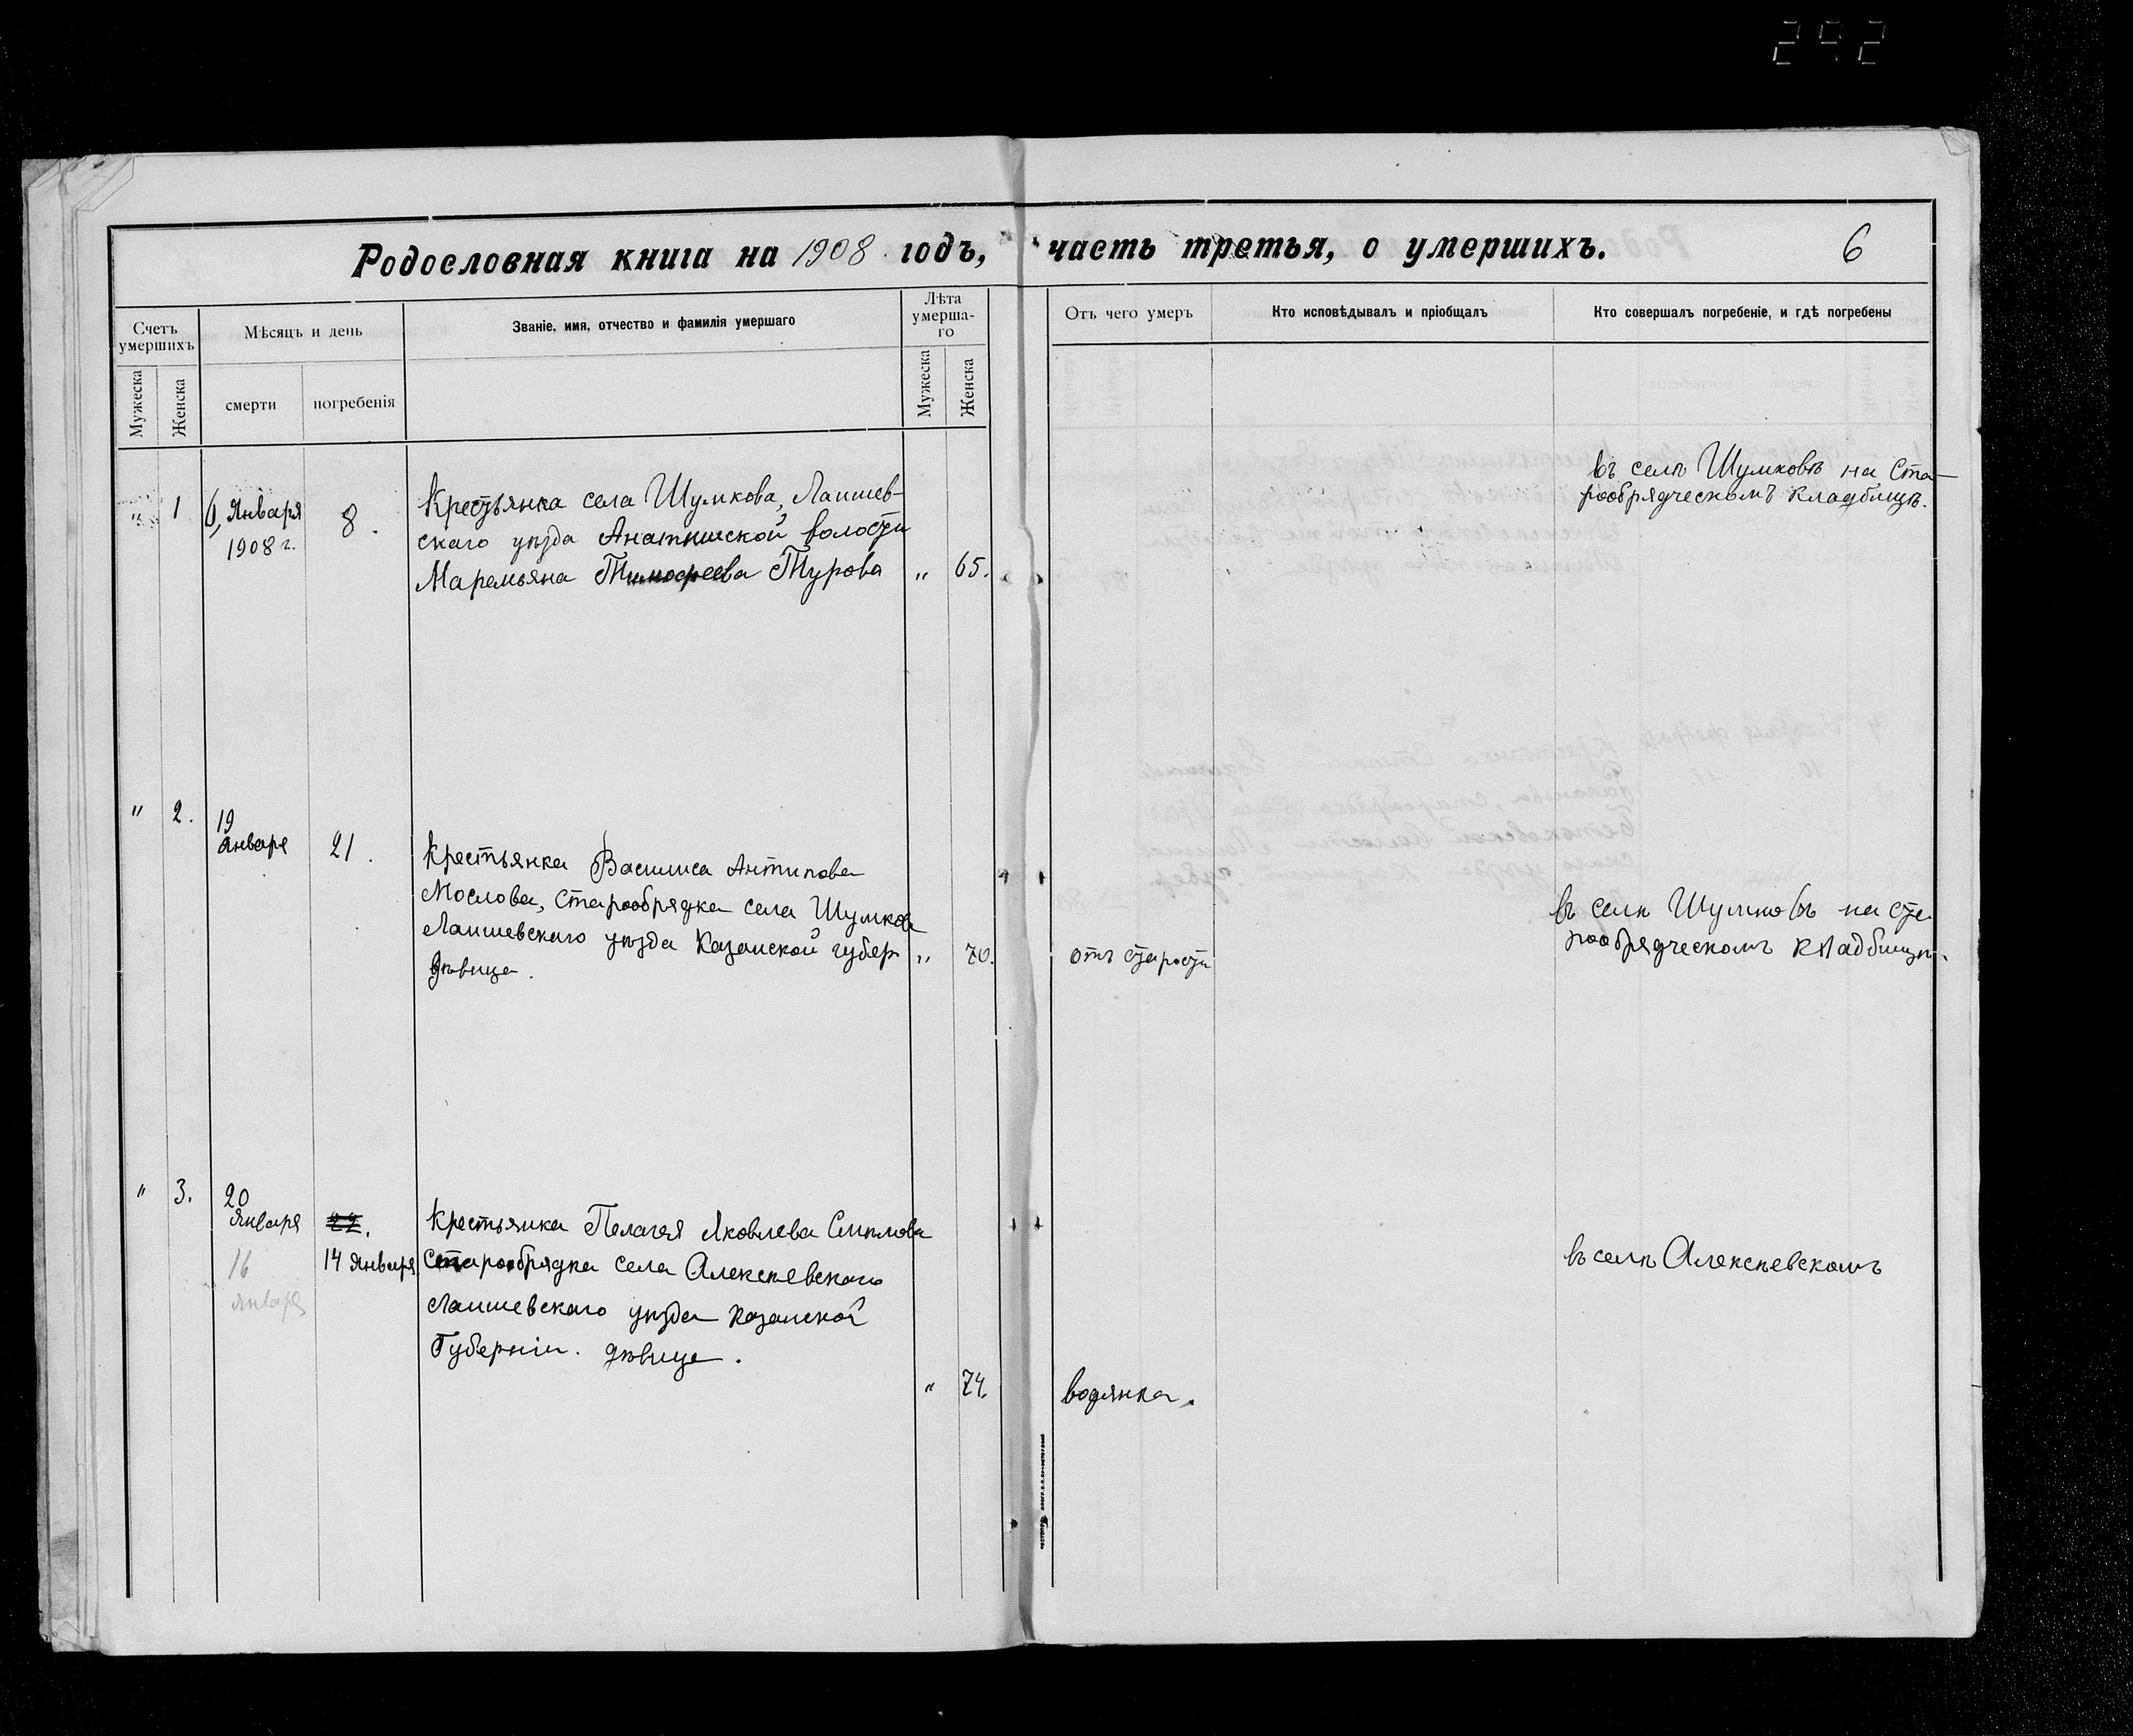 292
Родословная книга на 1908 годъ, часть третья, о умершихъ.
6
Счетъ умершихъ
Мѣсяцъ и день
Званіе, имя, отчество и фамилія умершаго
Лѣта умерша-го
Отъ чего умеръ
Кто исповѣдывалъ и пріобщалъ
Кто совершалъ погребеніе, и гдѣ погребены
Мужеска
Женска
смерти
погребенія
Мужеска
Женска
" 1 6, Января 8.
1908 г.
Крестьянка села Шумкова, Лаишев-
скаго уѣзда Анатышской волости
Маремьяна Тимофеева Турова " 65.
въ селѣ Шумковѣ на Ста-
рообрядческомъ Кладбищѣ.
" 2. 19
Января 21.
Крестьянка Василиса Антипова
Мослова, Старообрядка села Шумкова
Лаишевскаго уѣзда Казанской губер " 70.
дѣвица.
отъ старости
въ селѣ Шумковѣ на Ста
рообрядческомъ Кладбищѣ.
" 3. 20
Января 22.
16
Января
14 Января
Крестьянка Пелагея Яковлева
Старообрядка села Алексѣевскаго
Лаишевскаго уѣзда Казанской
Губерніи. дѣвица.
" 74.
водянка.
въ селѣ Алексѣевскомъ